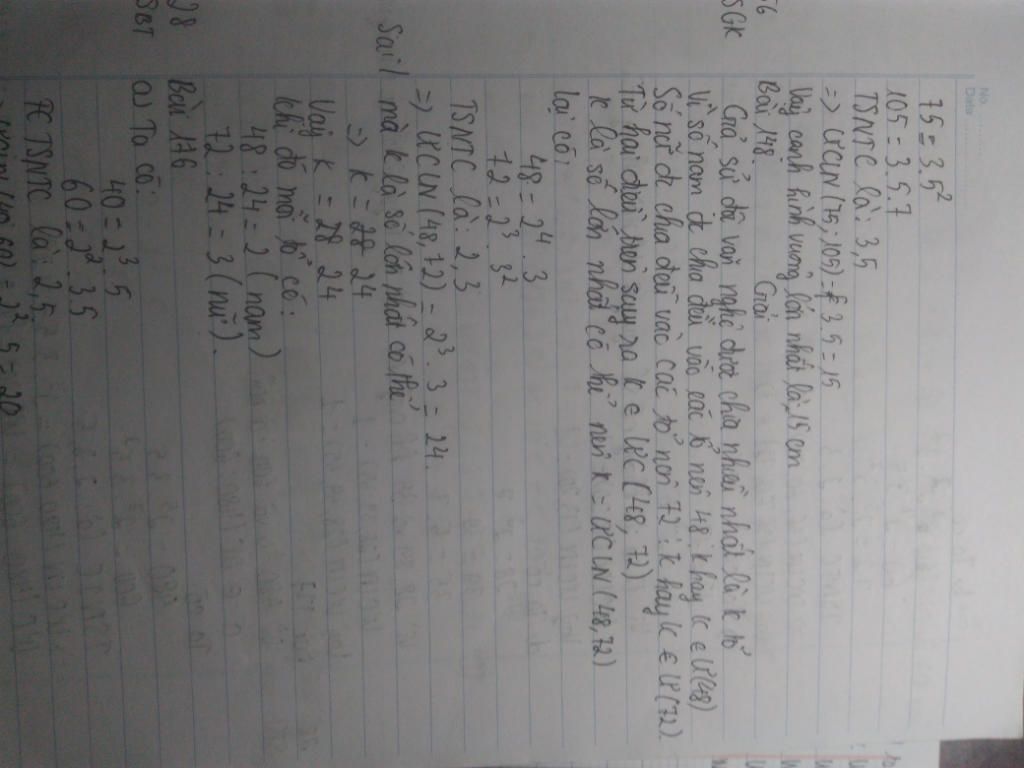 No.
Date
75 = 3.5²
105 = 3.5.7
TSNTC là: 3,5
=> ƯCLN(75; 105) = 3.5 = 15
Vậy cạnh hình vuông lớn nhất là: 15 cm
56
SGK
Bài 148. Giải
Giả sử đội văn nghệ được chia nhiều nhất là k tổ
Vì số nam đc chia đều vào các tổ nên 48 ⋮ k hay k ∈ Ư(48)
Số nữ đc chia đều vào các tổ nên 72 ⋮ k hay k ∈ Ư(72)
Từ hai điều trên suy ra k ∈ ƯC(48, 72)
k là số lớn nhất có thể nên k = ƯCLN(48,72)
lại có:
48 = 2⁴. 3
72 = 2³. 3²
TSNTC là: 2,3
=> ƯCLN(48,72) = 2³. 3 = 24.
Sai! mà k là số lớn nhất có thể
=> k = 28 24
Vậy k = 28 24
khi đó mỗi tổ có:
48 : 24 = 2 (nam)
72 : 24 = 3 (nữ).
98
SBT
Bài 176
a) Ta có:
40 = 2³.5
60 = 2².3.5
TSNTC là: 2,5
(40,60) = 2².5 = 20